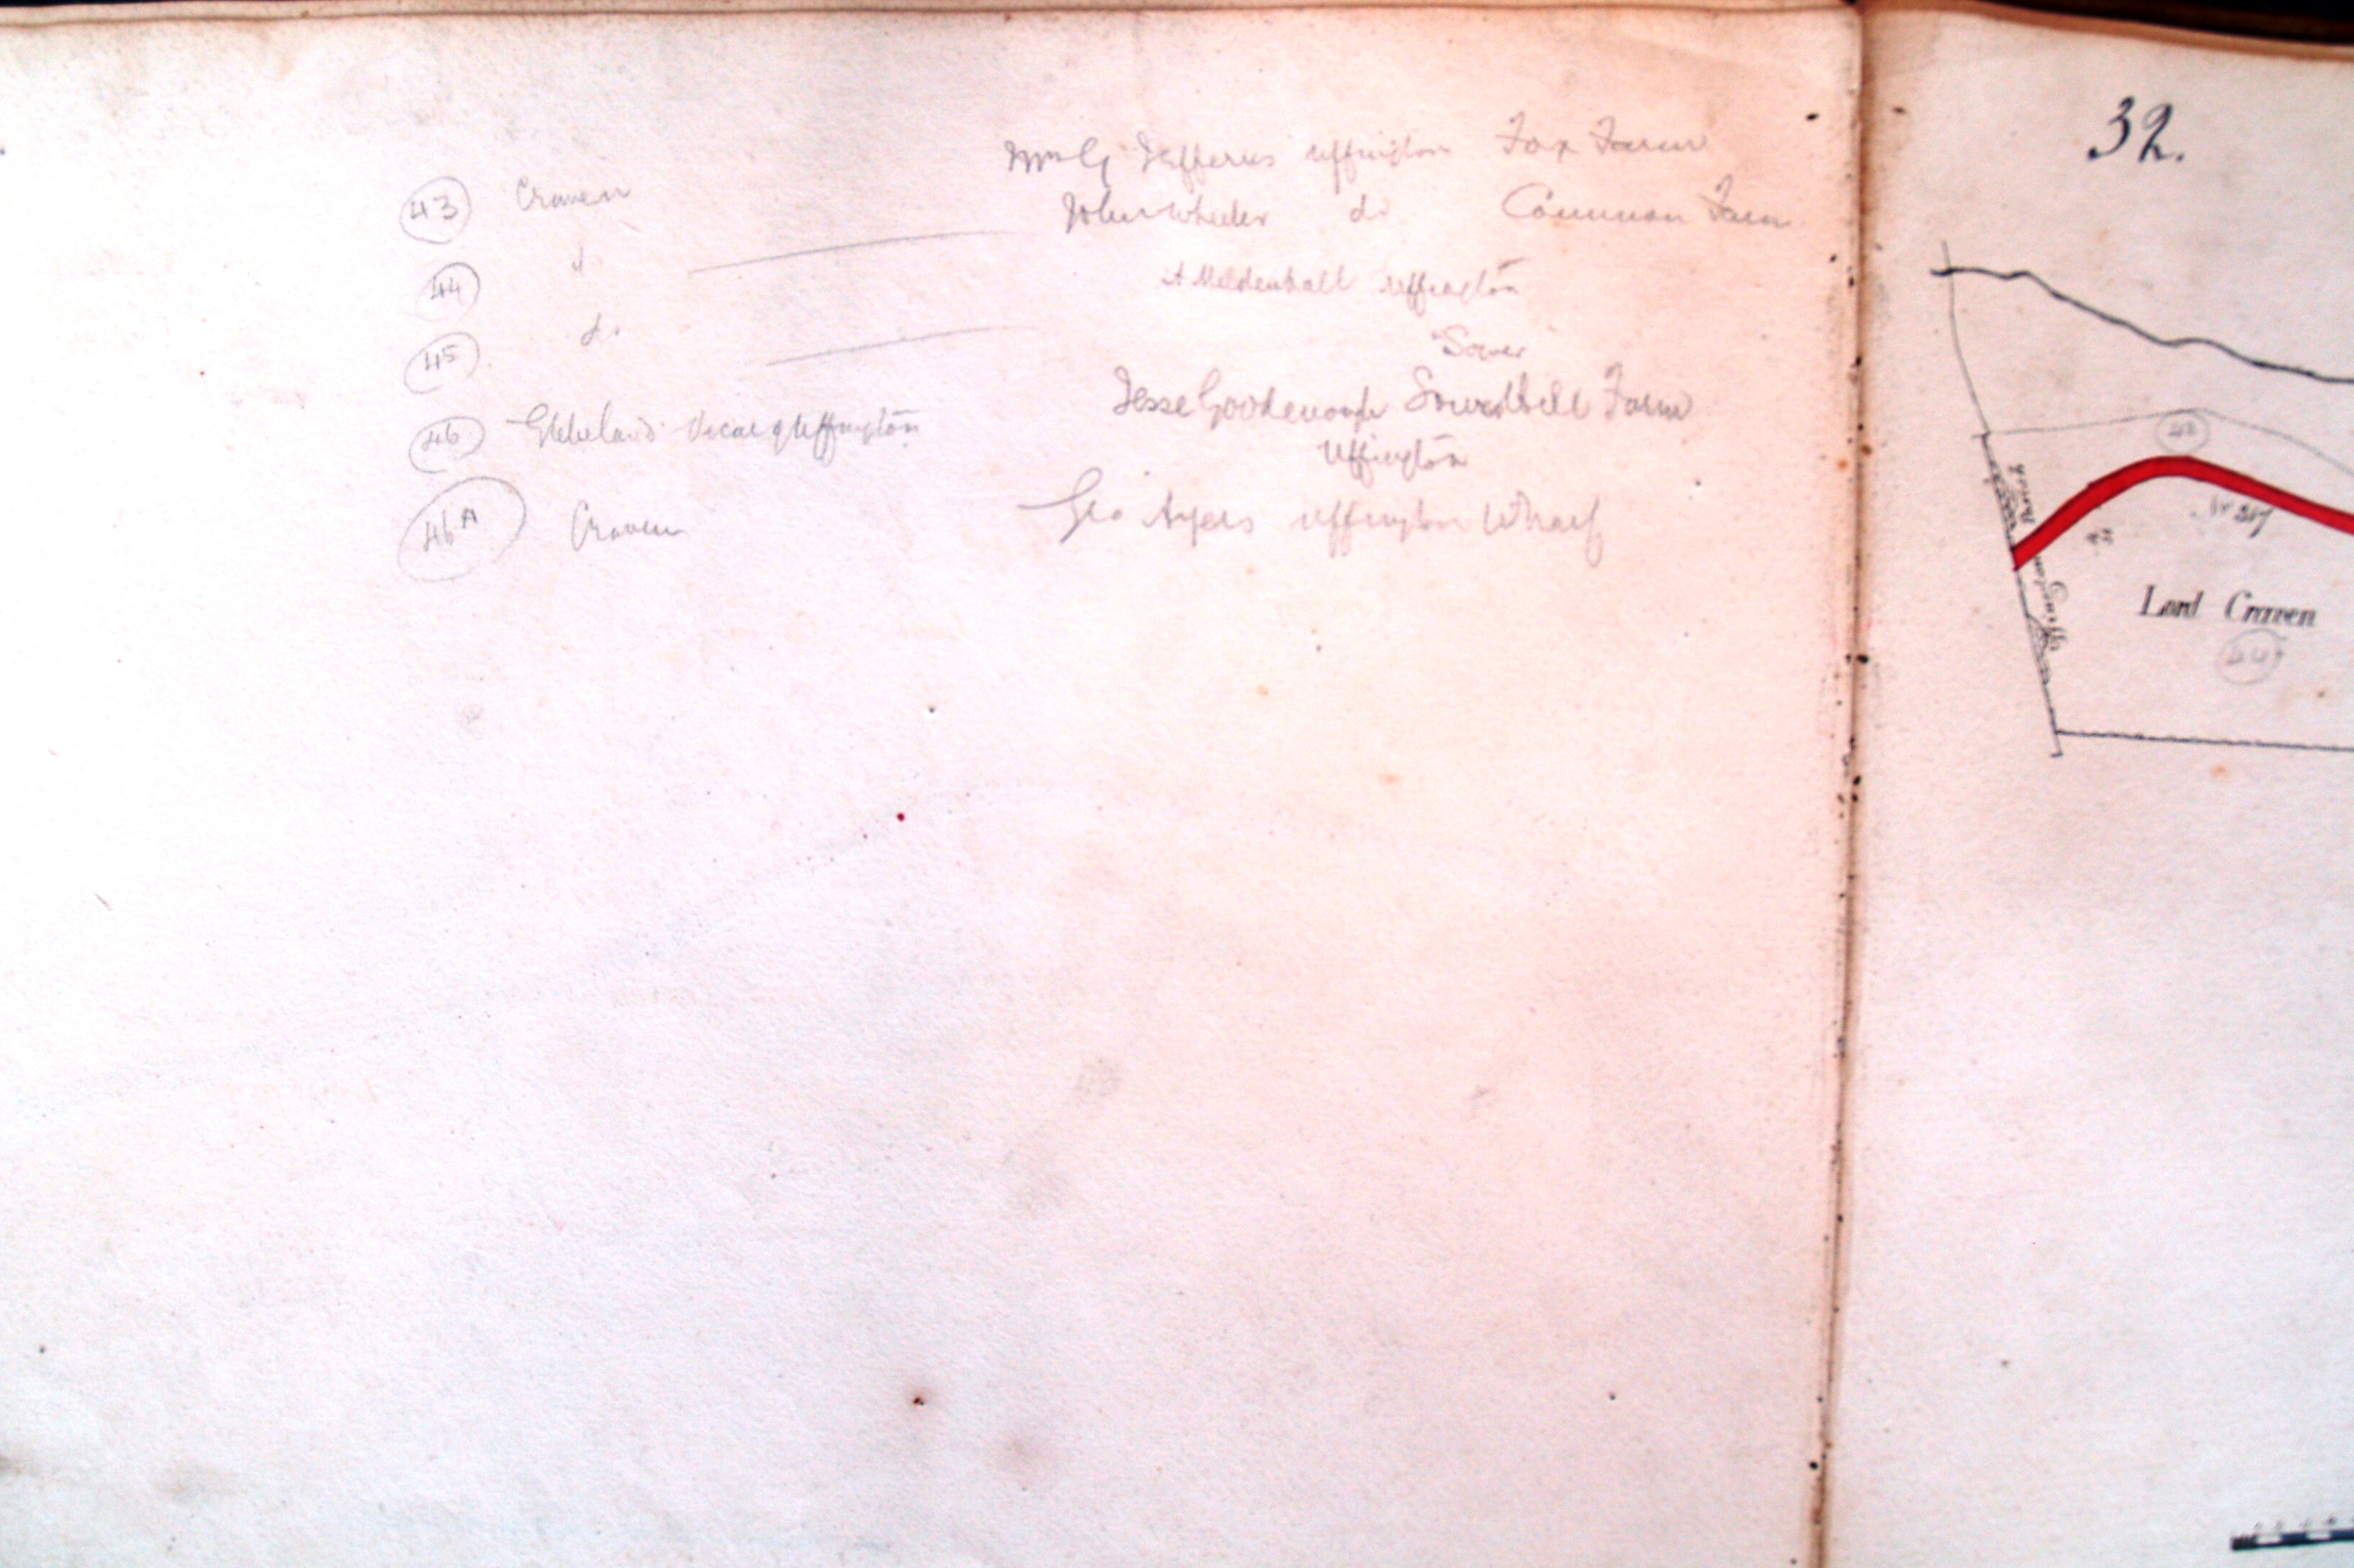 Wm G Jefferies Uffington Fox Farm
43 Craven John Wheeler do Common Farm
44 do A Meldenhall Uffington
45 do
Sower
46 Glebeland Vicar of Uffington Jesse Goodenough Sowerhill Farm
Uffington
46A Craven Geo Ayers Uffington Wharf
32.
43
No 217
Lord Craven
44